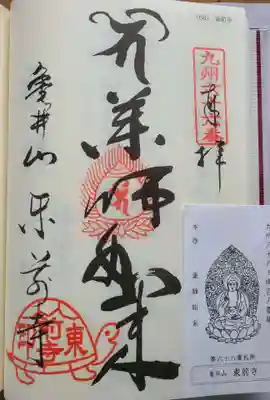 (68) 東前寺
奉拝
九州六十八番
薬師如来
亀井山 東前寺
本尊 薬師如来
第六十八番札所
亀井山 東前寺